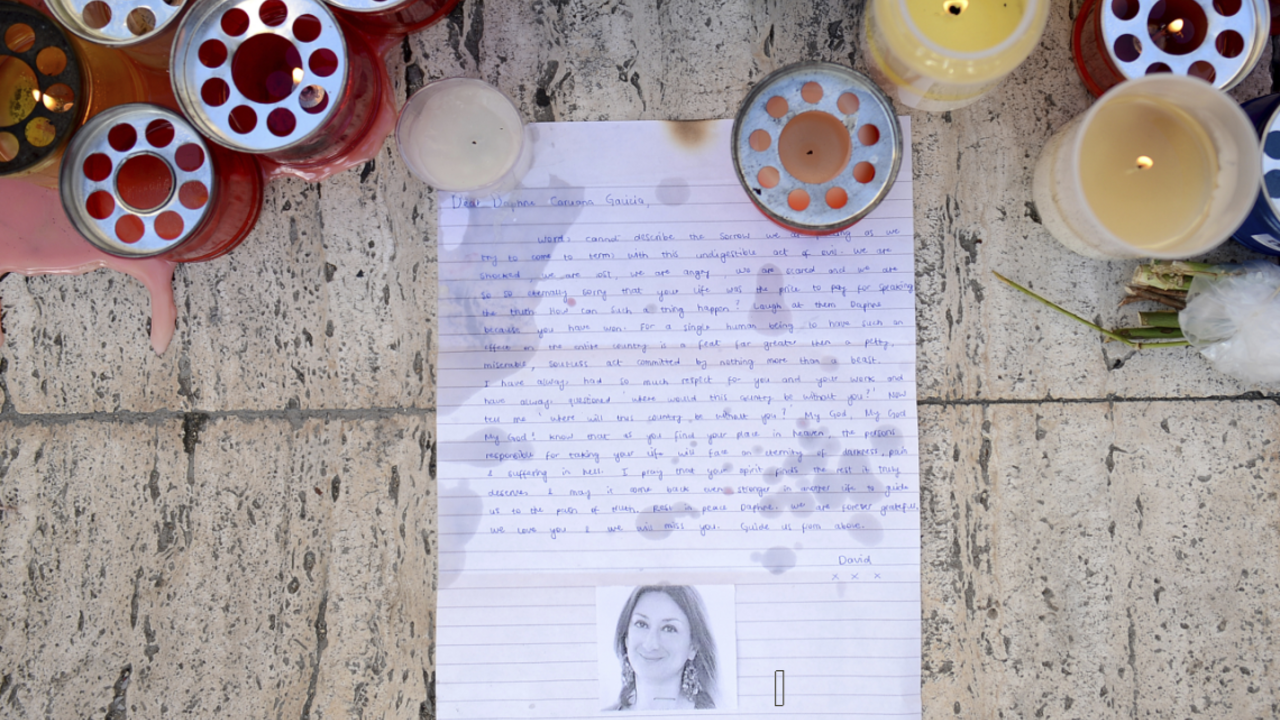 Dear Daphne Caruana Galicia,
Words cannot describe the sorrow we are as we
try to come to terms with this undigestible act of evil. We are
shocked, we are lost, we are angry, we are scared and we are
so so eternally sorry that your life was the price to pay for speaking
the truth. How can such a thing happen? Laugh at them Daphne
because you have won. For a single human being to have such an
effect on the entire country is a feat far greater then a petty,
miserable, soulless act committed by nothing more than a beast.
I have always had so much respect for you and your work and
have always questioned 'where would this country be without you?' Now
tell me 'where will this country be without you?' My God, My God
My God! Know that as you find your place in heaven, the persons
responsible for taking your life will face an eternity of darkness, pain
& suffering in hell. I pray that your spirit finds the rest it truly
deserves & may it come back even stronger in another life to guide
us to the path of truth. Rest in peace Daphne. We are forever grateful,
we love you & we will miss you. Guide us from above.
David
x x x